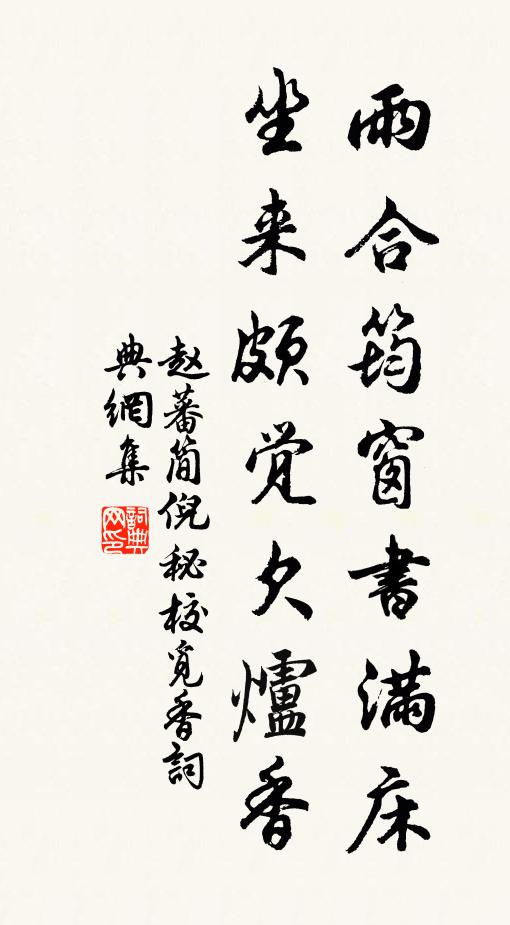 雨合筠窗書滿床
坐来頗觉欠爐香
赵蕃简倪秘校覓香詞
典網集
詞典网印